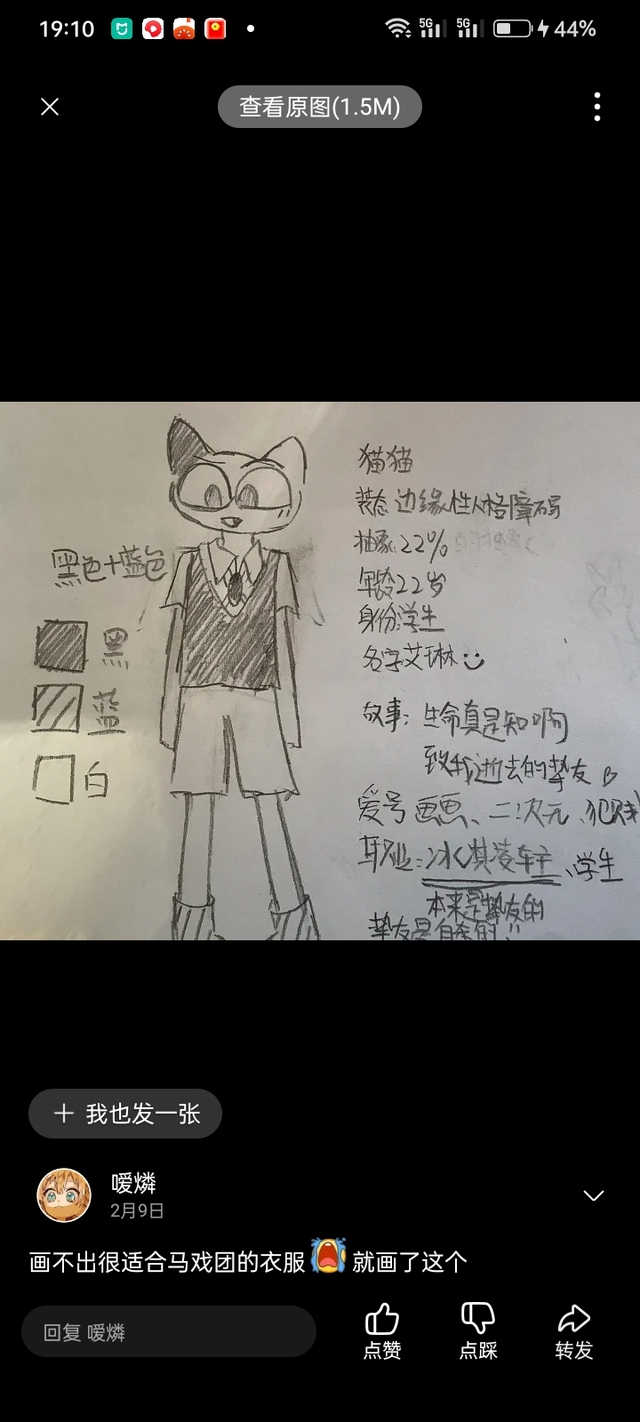 19:10
5G
5G
44%
查看原图(1.5M)
猫猫
装态 边缘性人格障碍
抽象:22%
年龄22岁
身份:学生
名字艾琳
黑色+蓝色
黑
蓝
白
故事: 生命真是如啊
致我逝去的挚友
爱号 画画、二次元、犯贱
耳业:冰淇凌车主、学生
本来是挚友的
挚友是自杀的
+ 我也发一张
嗳燐
2月9日
画不出很适合马戏团的衣服 就画了这个
回复 嗳燐
点赞
点踩
转发